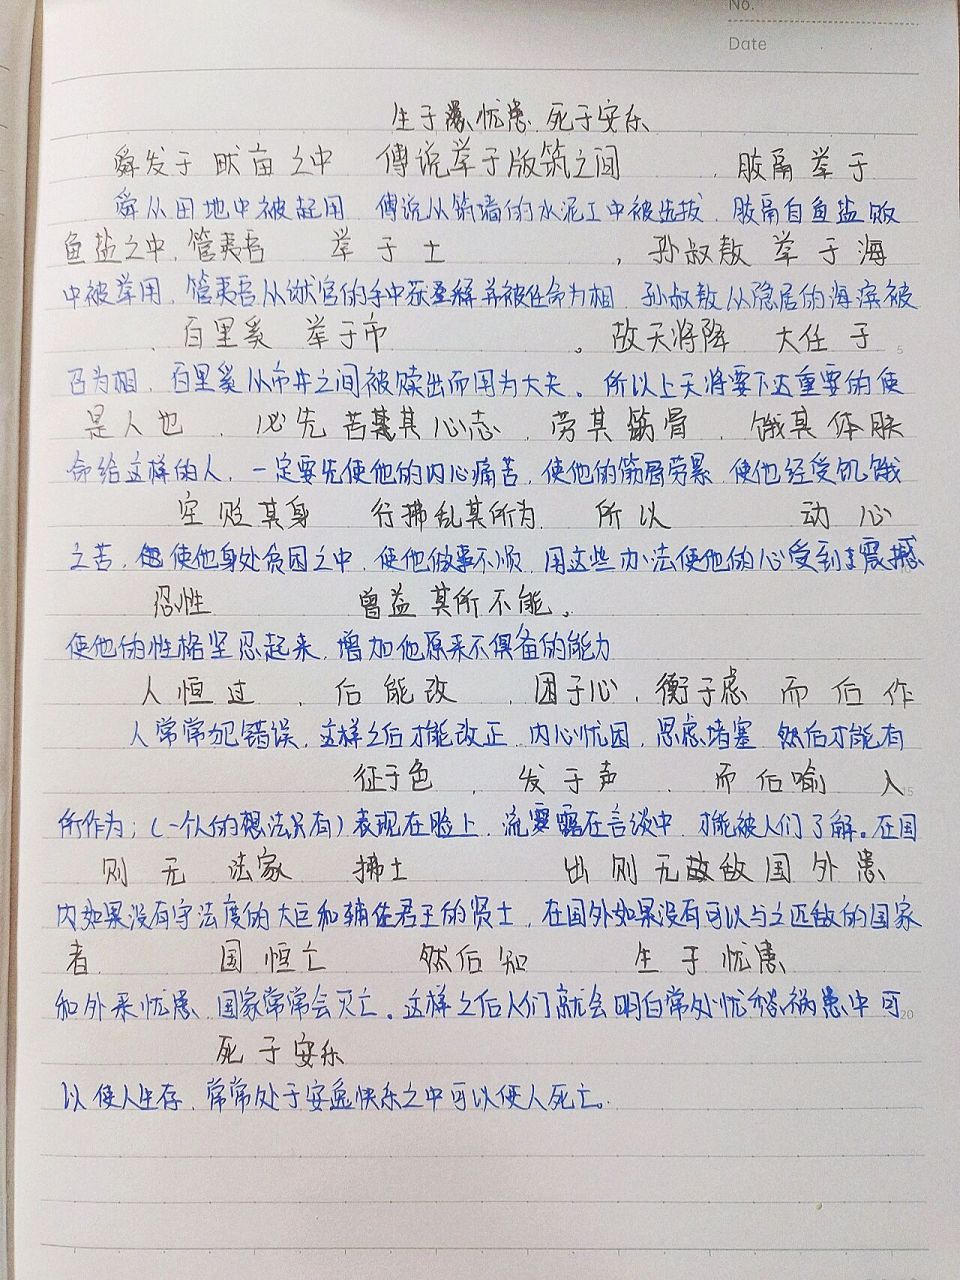 No.
Date
生于忧患 死于安乐
舜发于畎亩之中 傅说举于版筑之间 , 胶鬲举于
舜从田地中被起用 傅说从筑墙的水泥工中被选拔, 胶鬲自鱼盐贩
鱼盐之中, 管夷吾 举于士 , 孙叔敖举于海
中被举用, 管夷吾从狱官的手中获释并被任命为相, 孙叔敖从隐居的海滨被
, 百里奚 举于市 。 故天将降 大任于
5
召为相, 百里奚从市井之间被赎出而用为大夫。所以上天将要下达重要的使
是人也 , 必先苦其心志, 劳其筋骨, 饿其体肤
命给这样的人, 一定要先使他的内心痛苦, 使他的筋骨劳累, 使他经受饥饿
空贬其身 行拂乱其所为 所以 动心
之苦, 使他身处贫困之中, 使他做事不顺, 用这些办法使他的心受到震撼
忍性 曾益其所不能。
使他的性格坚忍起来, 增加他原来不俱备的能力
人恒过 , 后能改 , 困于心, 衡于虑 而后作
人常常犯错误, 这样之后才能改正, 内心忧困, 思虑堵塞 然后才能有
征于色 , 发于声 而后喻 入
15
所作为;(一个人的想法只有)表现在脸上, 流露在言谈中, 才能被人们了解。在国
则无 法家 拂士 出则无敌国外患
内如果没有守法度的大臣和辅佐君王的贤士, 在国外如果没有可以与之匹敌的国家
者 国恒亡 然后知 生于忧患
和外来忧患, 国家常常会灭亡。这样之后人们就会明白常处忧愁祸患中可
20
死于安乐
以使人生存, 常常处于安逸快乐之中可以使人死亡。